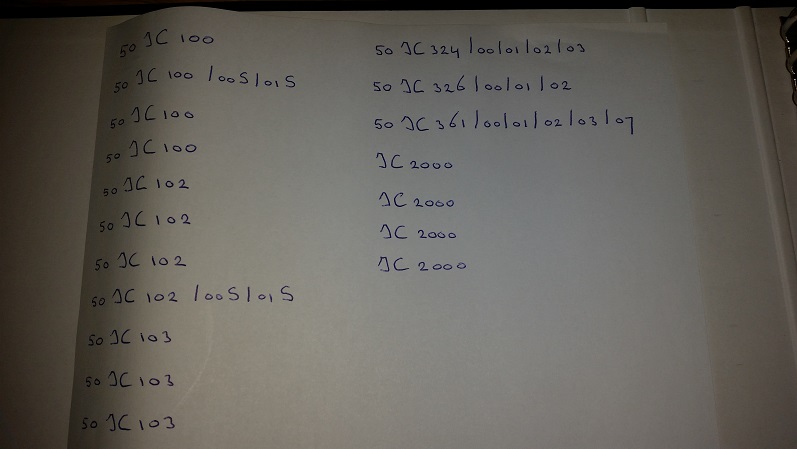 50 IC 100
50 IC 100 /00S/01S
50 IC 100
50 IC 100
50 IC 102
50 IC 102
50 IC 102
50 IC 102 /00S/01S
50 IC 103
50 IC 103
50 IC 103
50 IC 324/00/01/02/03
50 IC 326/00/01/02
50 IC 361/00/01/02/03/07
IC 2000
IC 2000
IC 2000
IC 2000